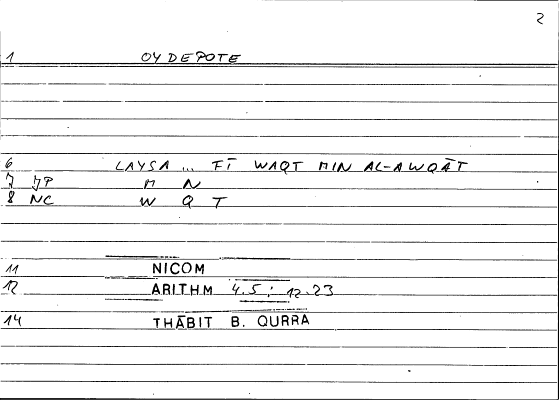 2
1 OYDEPOTE
6 LAYSA ... FĪ WAQT MIN AL-AWQĀT
7 JP M N
8 NC W Q T
11 NICOM
12 ARITHM 4.5; 12.23
14 THĀBIT B. QURRA